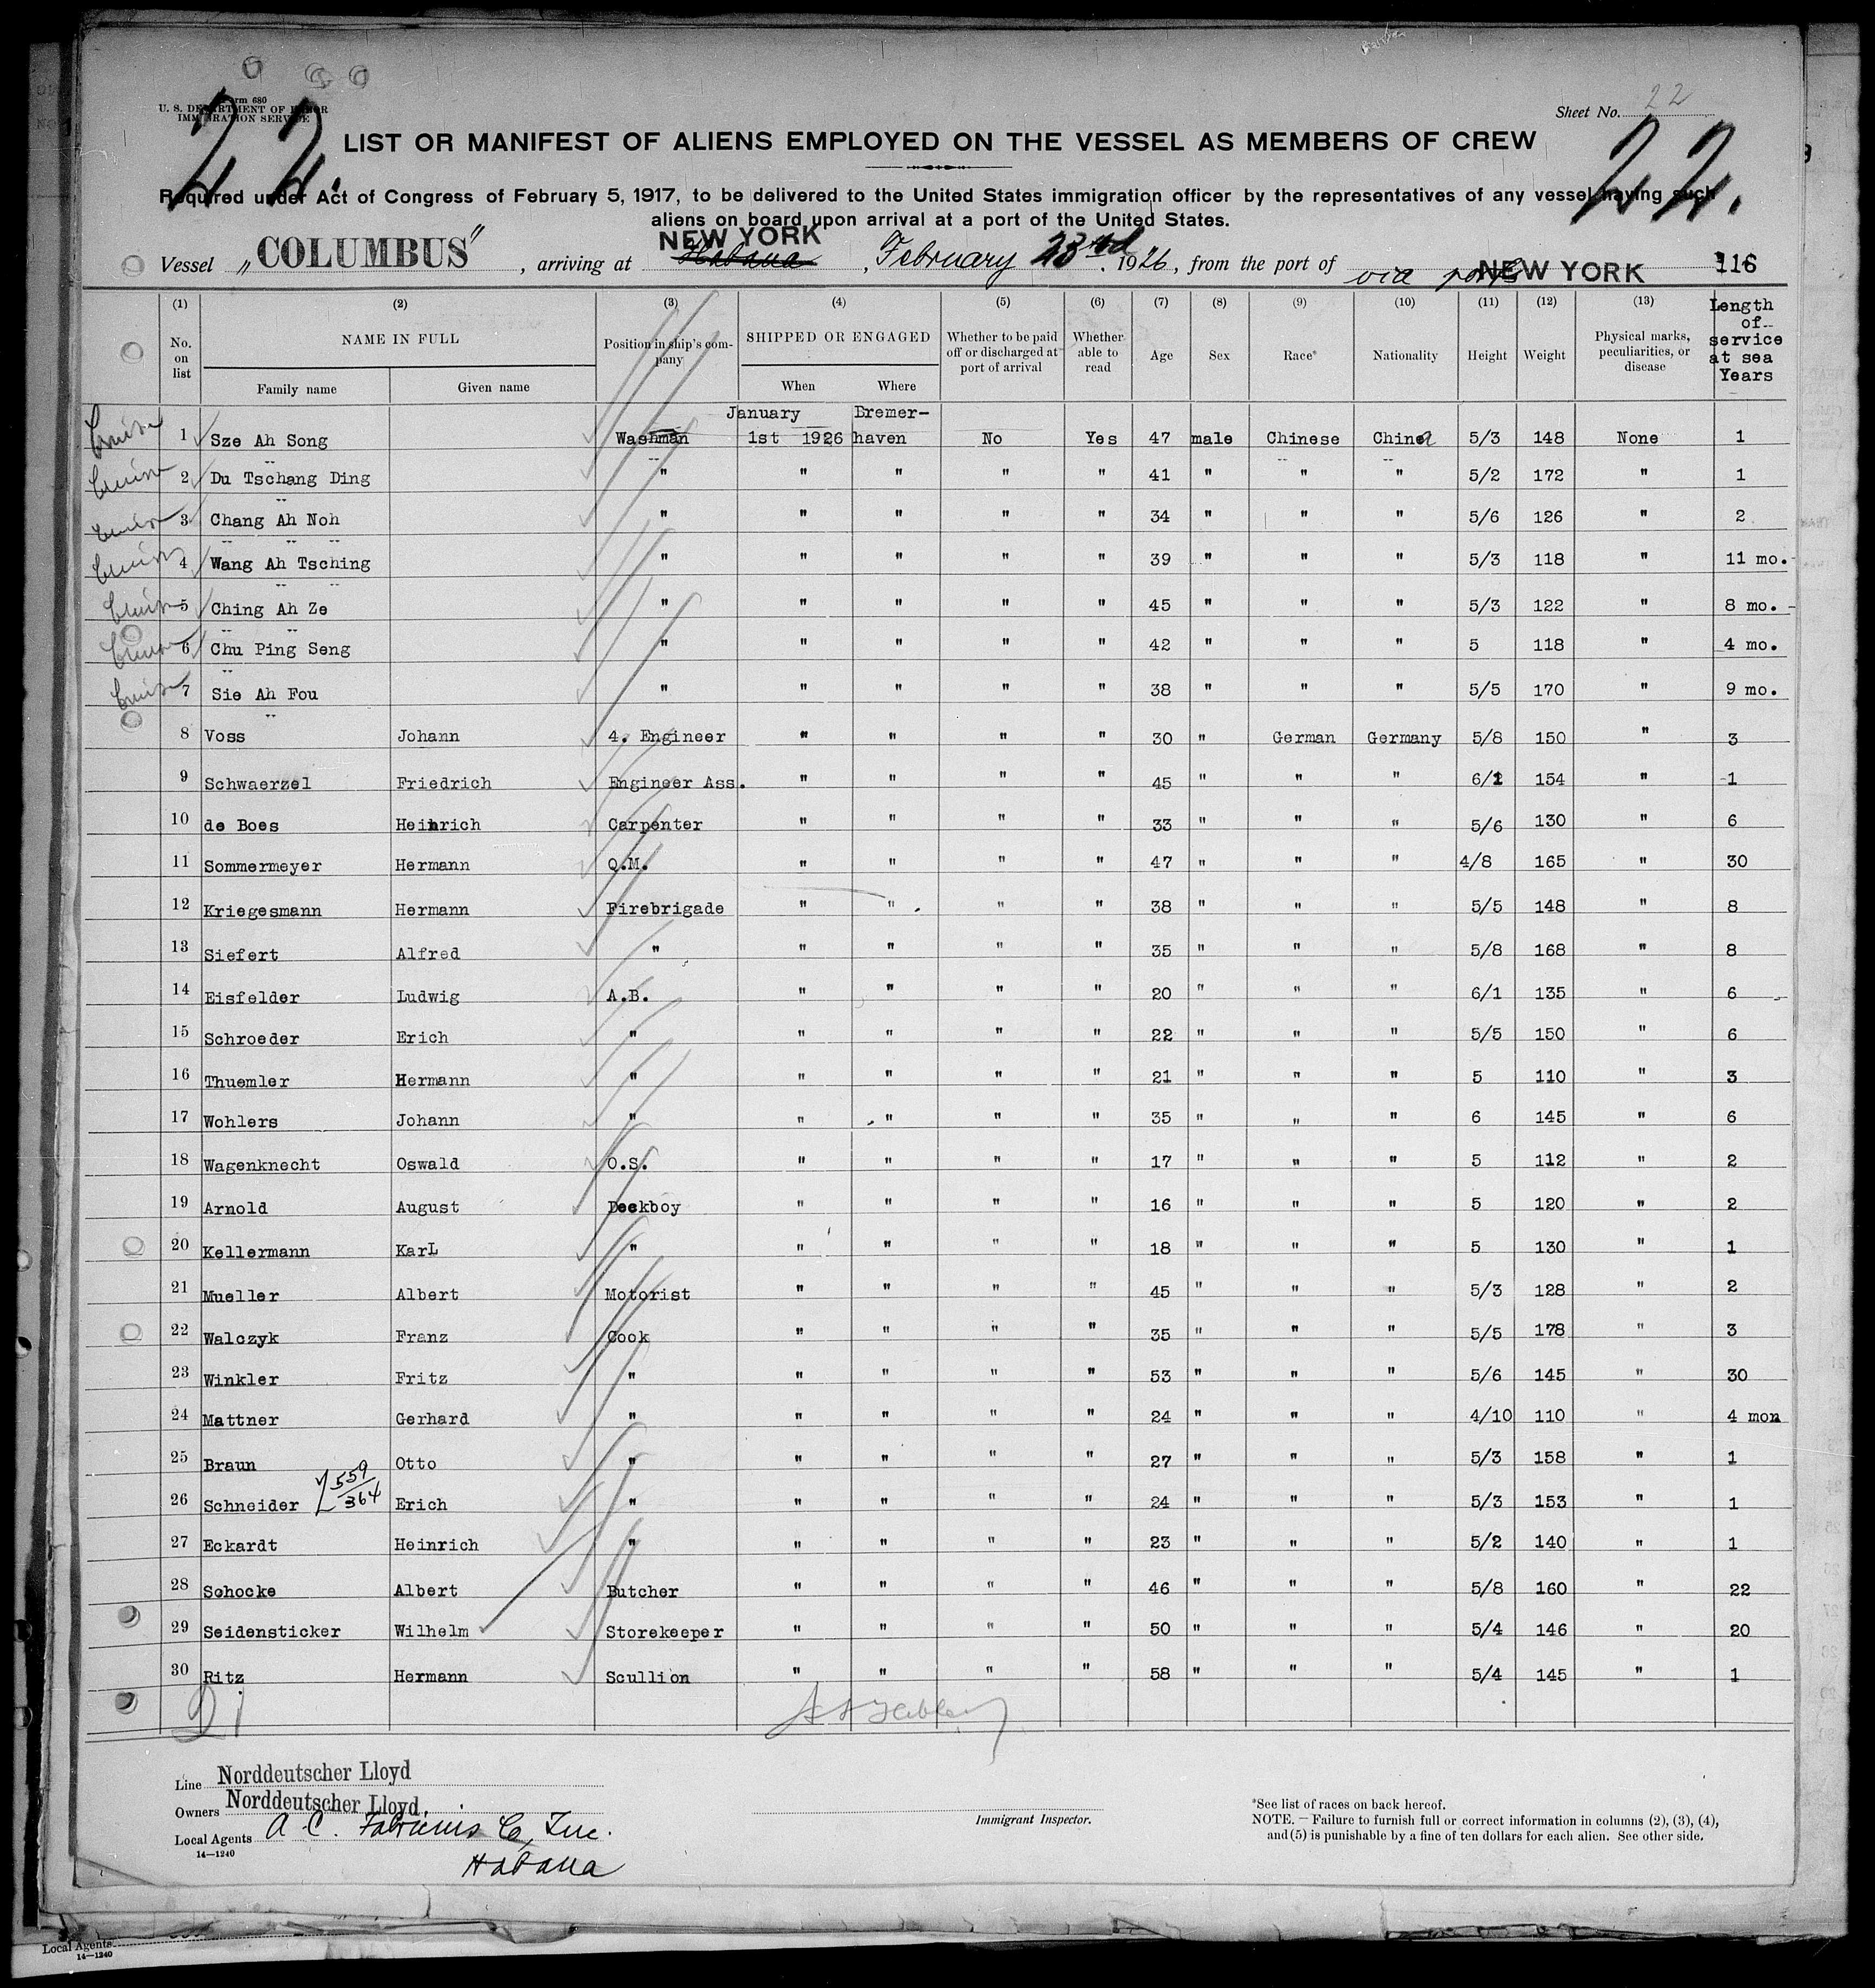 Form 680
U. S. DEPARTMENT OF LABOR
IMMIGRATION SERVICE
Sheet No. 22
22. 22.
LIST OR MANIFEST OF ALIENS EMPLOYED ON THE VESSEL AS MEMBERS OF CREW
Required under Act of Congress of February 5, 1917, to be delivered to the United States immigration officer by the representatives of any vessel having such
aliens on board upon arrival at a port of the United States.
NEW YORK
Vessel „COLUMBUS", arriving at Habana, February 23rd. 1926, from the port of via ports NEW YORK 116
(1) (2) (3) (4) (5) (6) (7) (8) (9) (10) (11) (12) (13) Length of service at sea Years
No. on list NAME IN FULL Position in ship's company SHIPPED OR ENGAGED Whether to be paid off or discharged at port of arrival Whether able to read Age Sex Race* Nationality Height Weight Physical marks, peculiarities, or disease
Family name Given name When Where
January Bremer-
1 Sze Ah Song Washman 1st 1926 haven No Yes 47 male Chinese China 5/3 148 None 1
2 Du Tschang Ding " " " " " 41 " " " 5/2 172 " 1
3 Chang Ah Noh " " " " " 34 " " " 5/6 126 " 2
4 Wang Ah Tsching " " " " " 39 " " " 5/3 118 " 11 mo.
5 Ching Ah Ze " " " " " 45 " " " 5/3 122 " 8 mo.
6 Chu Ping Seng " " " " " 42 " " " 5 118 " 4 mo.
7 Sie Ah Fou " " " " " 38 " " " 5/5 170 " 9 mo.
8 Voss Johann 4. Engineer " " " " 30 " German Germany 5/8 150 " 3
9 Schwaerzel Friedrich Engineer Ass. " " " " 45 " " " 6/1 154 " 1
10 de Boes Heinrich Carpenter " " " " 33 " " " 5/6 130 " 6
11 Sommermeyer Hermann Q.M. " " " " 47 " " " 4/8 165 " 30
12 Kriegesmann Hermann Firebrigade " " " " 38 " " " 5/5 148 " 8
13 Siefert Alfred " " " " " 35 " " " 5/8 168 " 8
14 Eisfelder Ludwig A.B. " " " " 20 " " " 6/1 135 " 6
15 Schroeder Erich " " " " " 22 " " " 5/5 150 " 6
16 Thuemler Hermann " " " " " 21 " " " 5 110 " 3
17 Wohlers Johann " " " " " 35 " " " 6 145 " 6
18 Wagenknecht Oswald O.S. " " " " 17 " " " 5 112 " 2
19 Arnold August Deckboy " " " " 16 " " " 5 120 " 2
20 Kellermann Karl " " " " " 18 " " " 5 130 " 1
21 Mueller Albert Motorist " " " " 45 " " " 5/3 128 " 2
22 Walczyk Franz Cook " " " " 35 " " " 5/5 178 " 3
23 Winkler Fritz " " " " " 53 " " " 5/6 145 " 30
24 Mattner Gerhard " " " " " 24 " " " 4/10 110 " 4 mon
25 Braun Otto " " " " " 27 " " " 5/3 158 " 1
26 Schneider 559/364 Erich " " " " " 24 " " " 5/3 153 " 1
27 Eckardt Heinrich " " " " " 23 " " " 5/2 140 " 1
28 Schocke Albert Butcher " " " " 46 " " " 5/8 160 " 22
29 Seidensticker Wilhelm Storekeeper " " " " 50 " " " 5/4 146 " 20
30 Ritz Hermann Scullion " " " " 58 " " " 5/4 145 " 1
Line Norddeutscher Lloyd
Owners Norddeutscher Lloyd.
Local Agents A. C. Fabricius Co, Inc.
14—1240
Habana
Immigrant Inspector.
*See list of races on back hereof.
NOTE.—Failure to furnish full or correct information in columns (2), (3), (4),
and (5) is punishable by a fine of ten dollars for each alien. See other side.
Local Agents
14—1240